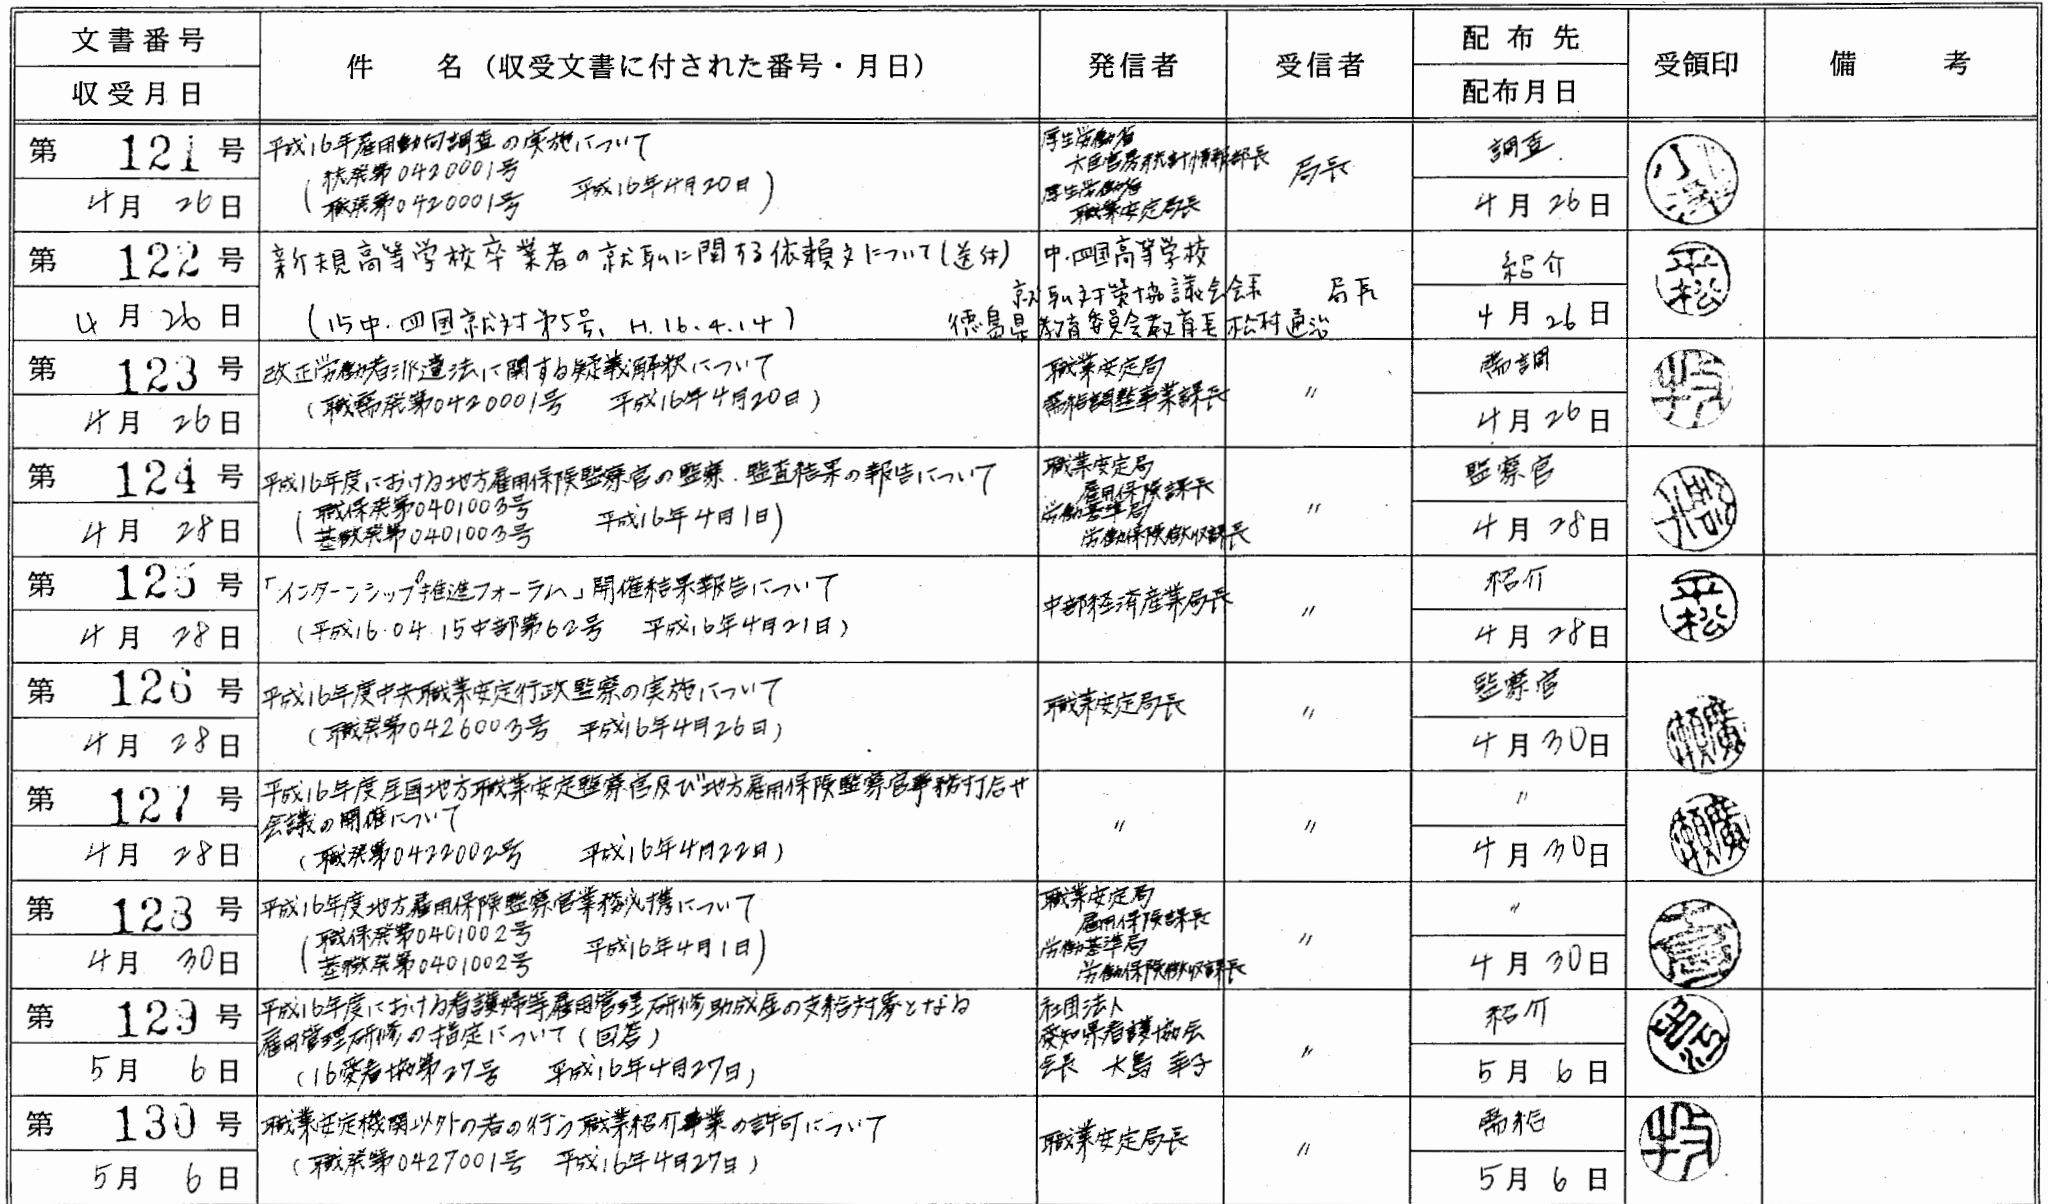 文書番号
収受月日
件 名（収受文書に付された番号・月日）
発信者
受信者
配布先
配布月日
受領印
備 考
第 121 号
4月 26日
平成16年雇用動向調査の実施について
（統発第0420001号
職発第0420001号 平成16年4月20日）
厚生労働省
大臣官房統計情報部長
厚生労働省
職業安定局長
局長
調査
4月26日
第 122 号
4月 26日
新規高等学校卒業者の就職に関する依頼文について（送付）
（15中・四国就対第5号、H.16.4.14）
中・四国高等学校
就職対策協議会会長
徳島県教育委員会教育長 松村通治
局長
紹介
4月26日
平松
第 123 号
4月 26日
改正労働者派遣法に関する疑義解釈について
（職需発第0420001号 平成16年4月20日）
職業安定局
需給調整事業課長
〃
需調
4月26日
第 124 号
4月 28日
平成16年度における地方雇用保険監察官の監察・監査結果の報告について
（職保発第0401003号
基徴発第0401003号 平成16年4月1日）
職業安定局
雇用保険課長
労働基準局
労働保険徴収課長
〃
監察官
4月28日
第 125 号
4月 28日
「インターンシップ推進フォーラム」開催結果報告について
（平成16・04・15中部第62号 平成16年4月21日）
中部経済産業局長
〃
紹介
4月28日
平松
第 126 号
4月 28日
平成16年度中央職業安定行政監察の実施について
（職発第0426003号 平成16年4月26日）
職業安定局長
〃
監察官
4月30日
第 127 号
4月 28日
平成16年度全国地方職業安定監察官及び地方雇用保険監察官事務打合せ
会議の開催について
（職発第0422002号 平成16年4月22日）
〃
〃
〃
4月30日
第 128 号
4月 30日
平成16年度地方雇用保険監察官業務必携について
（職保発第0401002号
基徴発第0401002号 平成16年4月1日）
職業安定局
雇用保険課長
労働基準局
労働保険徴収課長
〃
〃
4月30日
第 129 号
5月 6日
平成16年度における看護婦等雇用管理研修助成金の支給対象となる
雇用管理研修の指定について（回答）
（16愛看協第27号 平成16年4月27日）
社団法人
愛知県看護協会
会長 大島 幸子
〃
紹介
5月6日
第 130 号
5月 6日
職業安定機関以外の者の行う職業紹介事業の許可について
（職発第0427001号 平成16年4月27日）
職業安定局長
〃
需給
5月6日